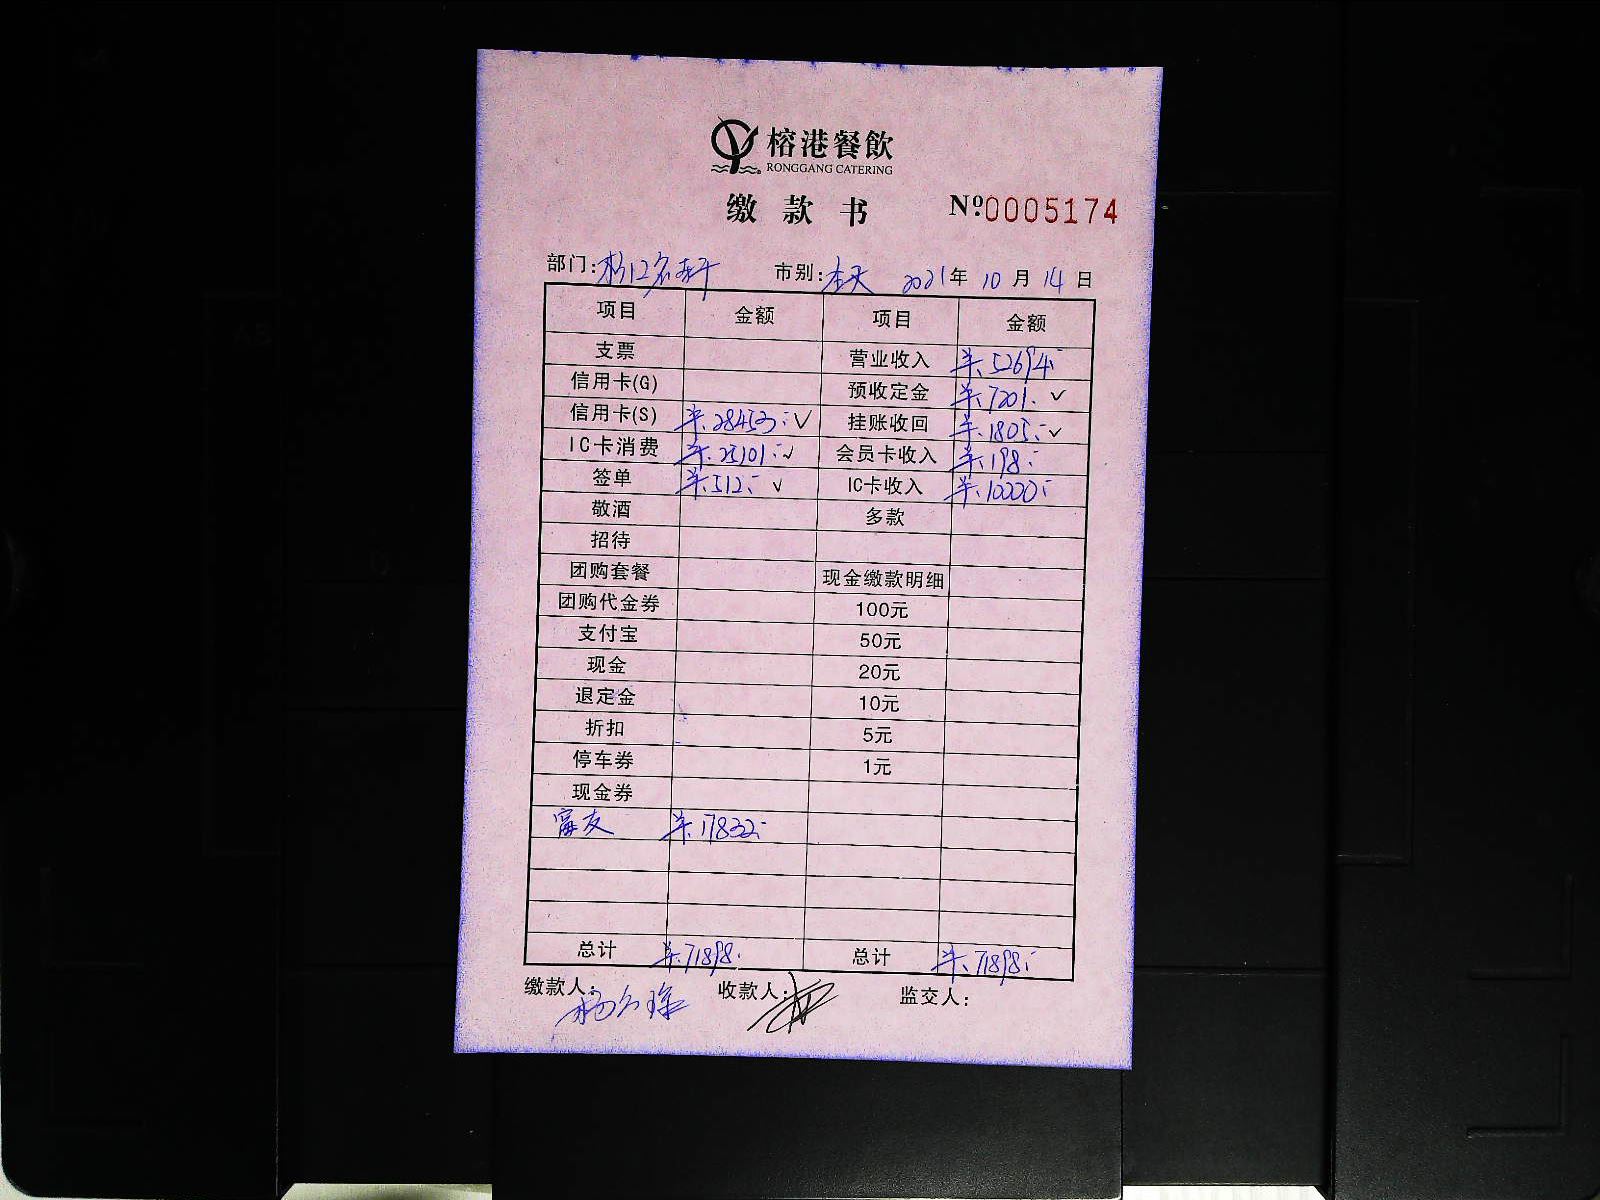 榕港餐飲
RONGGANG CATERING
缴款书 Nº0005174
部门: 名轩 市别:全天 2021年10月14日
项目 金额 项目 金额
支票 营业收入 ¥52694.-
信用卡(G) 预收定金 ¥7201.- ✓
信用卡(S) ¥28453.- ✓ 挂账收回 ¥1805.- ✓
IC卡消费 ¥25101.- ✓ 会员卡收入 ¥198.-
签单 ¥512.- ✓ IC卡收入 ¥10000.-
敬酒 多款
招待
团购套餐 现金缴款明细
团购代金券 100元
支付宝 50元
现金 20元
退定金 10元
折扣 5元
停车券 1元
现金券
富友 ¥17832.-
总计 ¥71898.- 总计 ¥71898.-
缴款人: 收款人: 监交人: